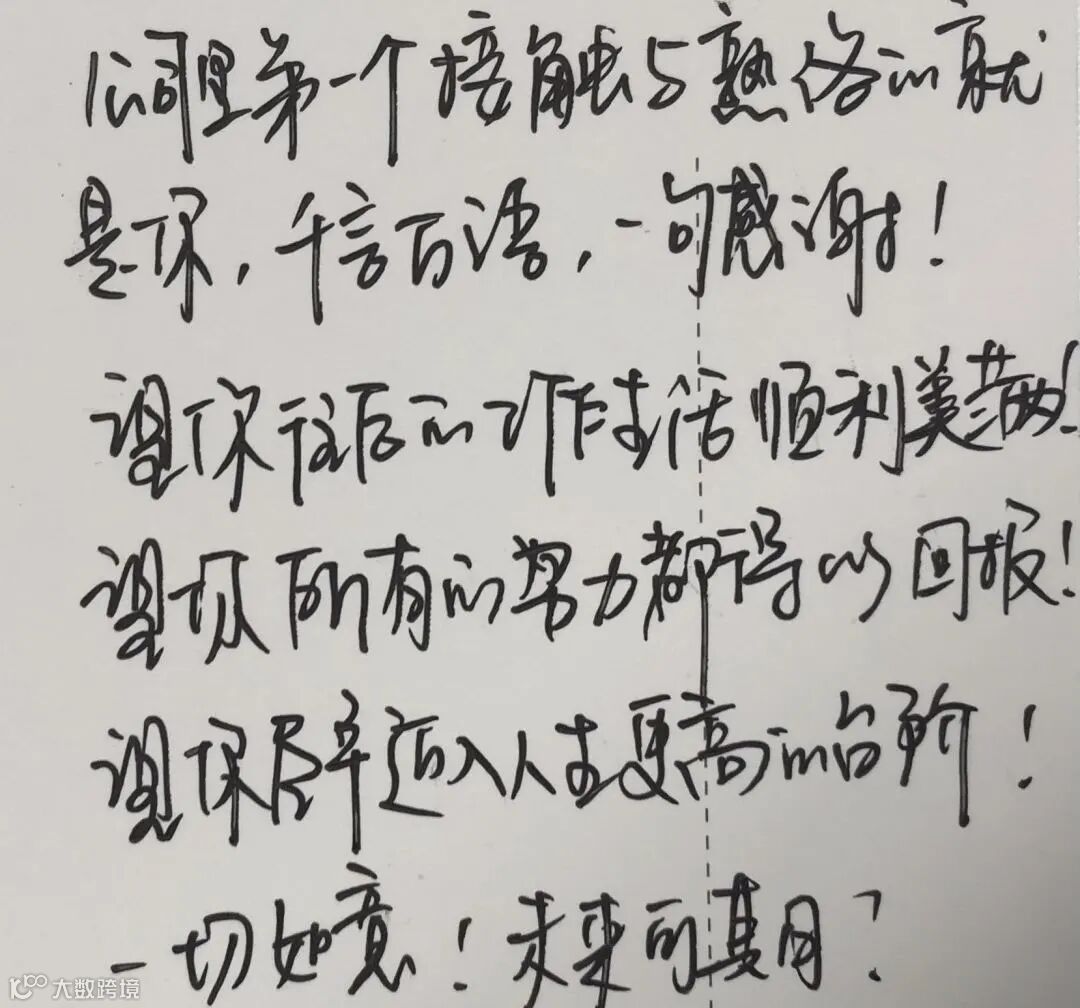 公司里第一个接触与熟络的就
是你，千言万语，一句感谢！
望你往后的工作生活顺利美满！
望你所有的努力都得以回报！
望你尽早迈入人生更高的台阶！
一切如意！未来可其月？
大数跨境